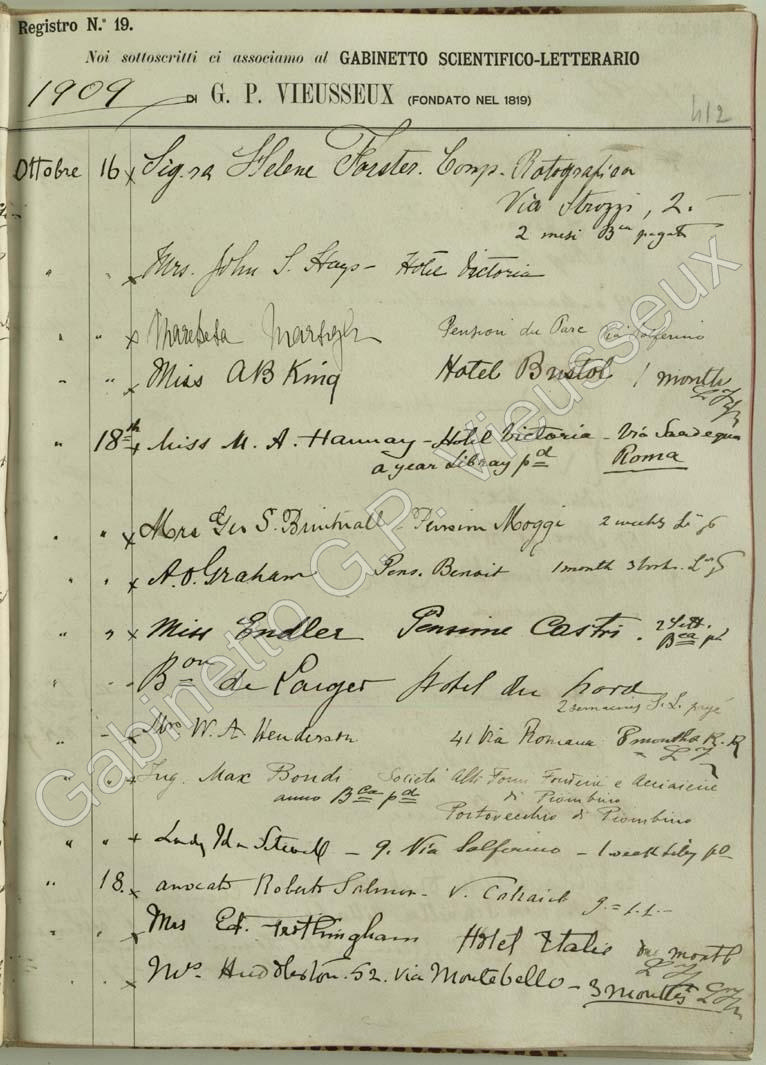 Registro N.º 19.
Noi sottoscritti ci associamo al GABINETTO SCIENTIFICO-LETTERARIO
1909 DI G. P. VIEUSSEUX (FONDATO NEL 1819)
412
Ottobre 16 x Sig.ra Helene Forster. Comp. Rotografica
Via Strozzi, 2.
2 mesi B.ca pagati
" " x Mrs. John S. Hays - Hotel Victoria
" " x Pension du Parc Via Solferino
" " x Miss AB King Hotel Bristol 1 month
" 18th x Miss M. A. Hannay - Hotel Victoria - Via
a year Library pd Roma
" " x Mrs Geo S. Pension Moggi 2 weeks
" " x A. O. Graham Pens. Benoit 1 month 3
" " x Miss Endler Pensione Castri . 2 Sett.
B.ca pd
" " Bon de Hotel du Nord
2 semaines S. L. payé
" " x Mrs W. A Henderson 41 Via Romana 8 months R. R
" " x Ing. Max Bondi Società Alti Forni Fonderie e Acciaierie
anno Bca pd di Piombino
Portovecchio di Piombino
" " x Lady 9. Via Solferino - 1 week
" 18. x avocato Roberto Salmon - V.
" " x Mrs Ed. Hotel Italie one month
" " x Mrs Huddleston. 52. Via Montebello - 3 months
Gabinetto G.P. Vieusseux